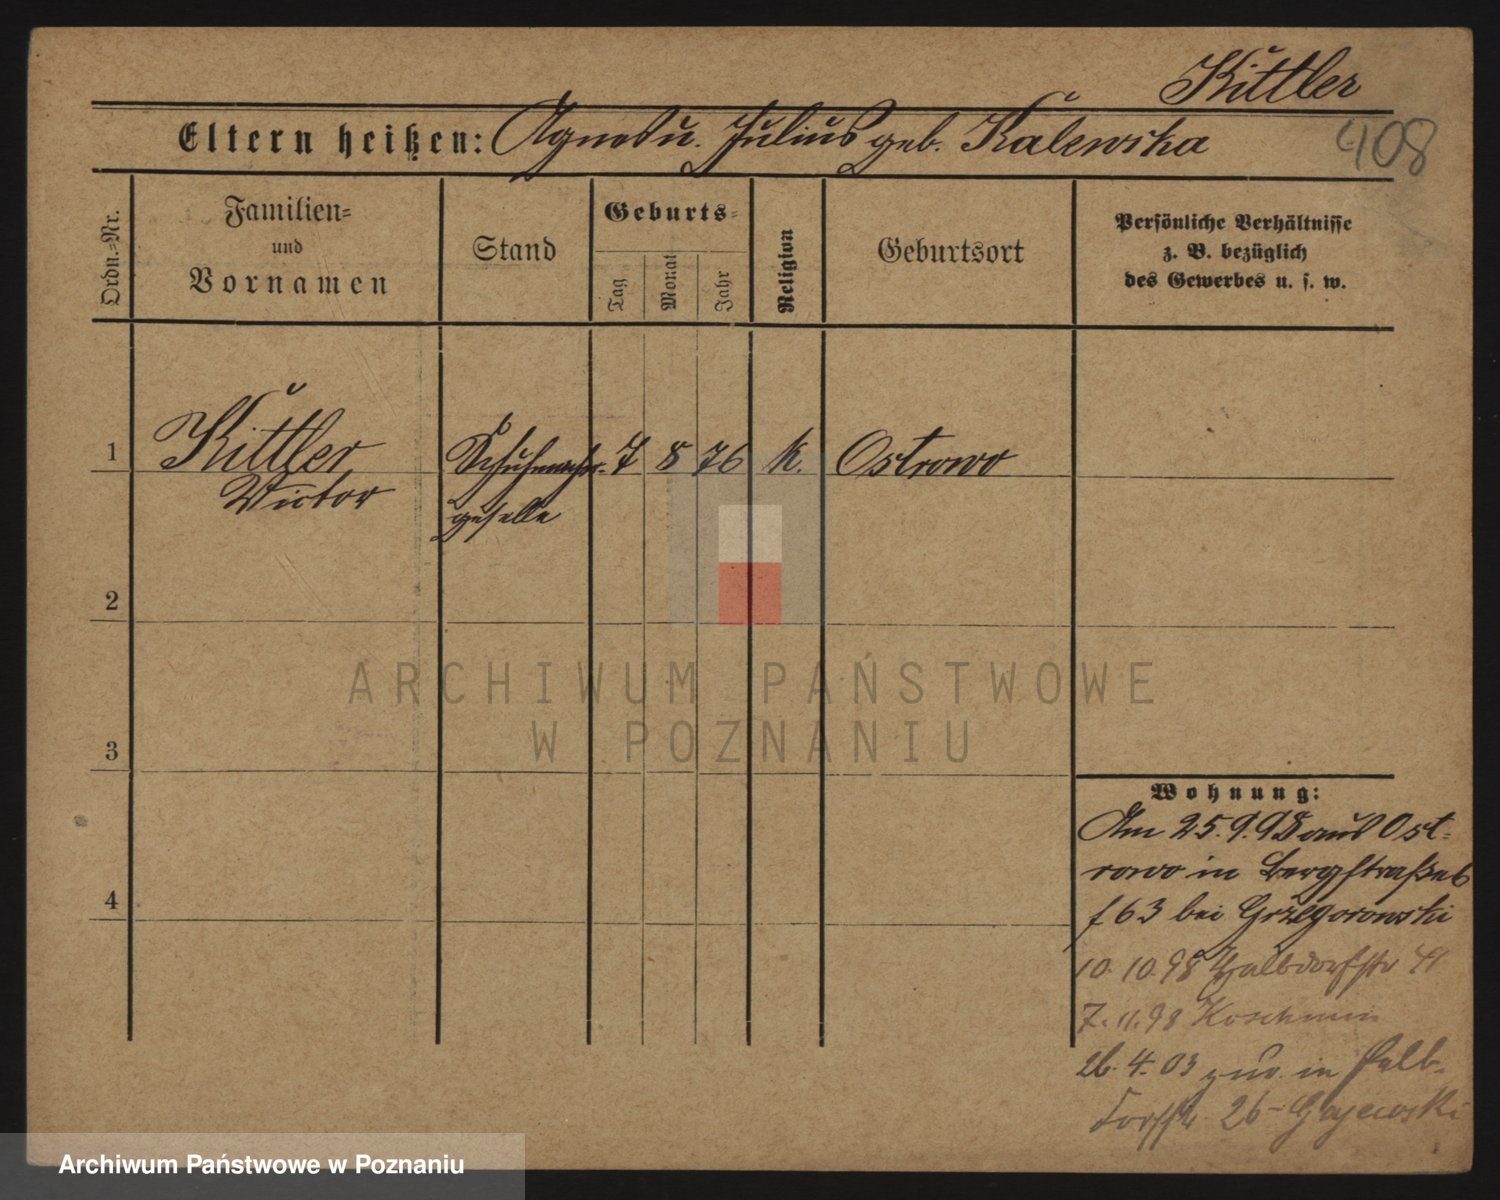 Kittler
Eltern heißen: Agnes u. Julius geb. Kalewska
408
Ordn.-Nr.
Familien-
und
Vornamen
Stand
Geburts-
Tag
Monat
Jahr
Religion
Geburtsort
Persönliche Verhältnisse
z. B. bezüglich
des Gewerbes u. s. w.
1
Kittler
Victor
Schuhmacher-
geselle
7
8
76
k.
Ostrowo
2
3
4
ARCHIWUM PAŃSTWOWE
W POZNANIU
Wohnung:
Am 25.9.98 aus Ost-
rowo in Bergstraße
63 bei Grzegorowski
10. 10.98 Halbdorfstr
7. 11.98 Koschmin
26. 4. 03 zur. in Halb-
dorfstr. 26 - Gajewski
Archiwum Państwowe w Poznaniu